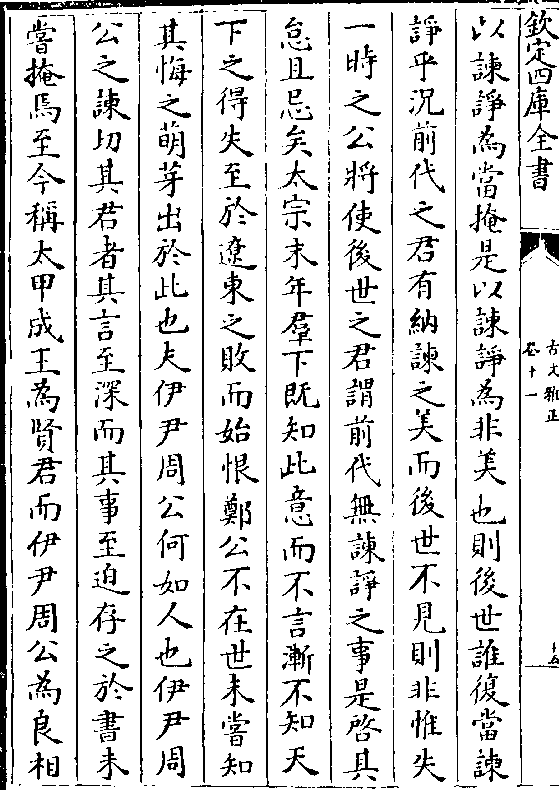 欽定四庫全書
古文雅正
卷十一
以諫諍為當掩是以諫諍為非美也則後世誰復當諫
諍乎況前代之君有納諫之美而後世不見則非惟失
一時之公將使後世之君謂前代無諫諍之事是啓其
怠且忌矣太宗末年羣下既知此意而不言漸不知天
下之得失至於遼東之敗而始恨鄭公不在世未嘗知
其悔之萌芽出於此也夫伊尹周公何如人也伊尹周
公之諫切其君者其言至深而其事至迫存之於書未
嘗掩焉至今稱太甲成王為賢君而伊尹周公為良相